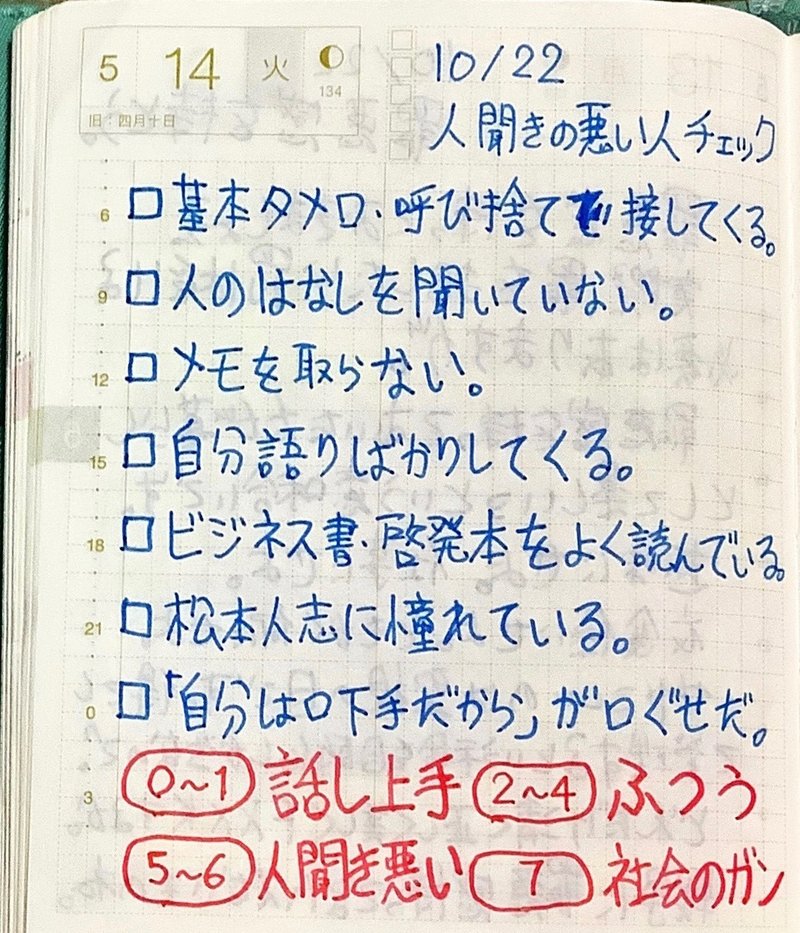 5 14 火 134
旧:四月十日
10/22
人聞きの悪い人チェック
6 □基本タメ口・呼び捨てで接してくる。
9 □人のはなしを聞いていない。
12 □メモを取らない。
15 □自分語りばかりしてくる。
18 □ビジネス書・啓発本をよく読んでいる。
21 □松本人志に憧れている。
0 □「自分は口下手だから」が口ぐせだ。
3 0~1 話し上手 2~4 ふつう
5~6 人聞き悪い 7 社会のガン